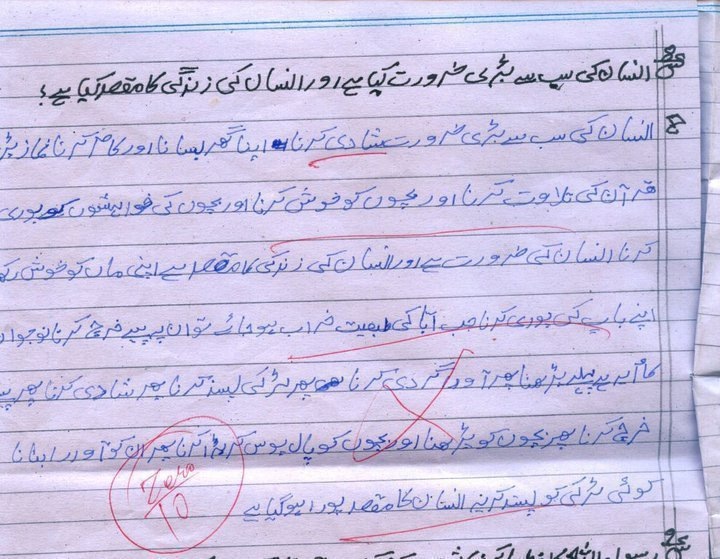 س انسان کی سب سے بڑی ضرورت کیا ہے اور انسان کی زندگی کا مقصد کیا ہے؟
ج انسان کی سب سے بڑی ضرورت شادی کرنا اپنا گھر بسانا اور کام کرنا نماز پڑ
قرآن کی تلاوت کرنا اور بچوں کو خوش کرنا اور بچوں کی خواہشوں کو پوری
کرنا انسان کی ضرورت ہے اور انسان کی زندگی کا مقصد ہے اپنی ماں کو خوش رکھ
اپنے باپ کی پوری کرنا جب آبا کی طبعیت خراب ہو جائے تو ان پر پیسے خرچ کرنا نوجوان
پہلے پڑھنا پھر آوارگردی کرنا پھر لڑکی پسند کرنا پھر شادی کرنا پھر پیسے
خرچ کرنا پھر بچوں کو پڑھنا اور بچوں کو پال پوس کر بڑا کرنا پھر ان کو آوارا بنانا
کوئی لڑکی کو پسند کرنے انسان کا مقصد پورا ہو گیا ہے
Zero
10